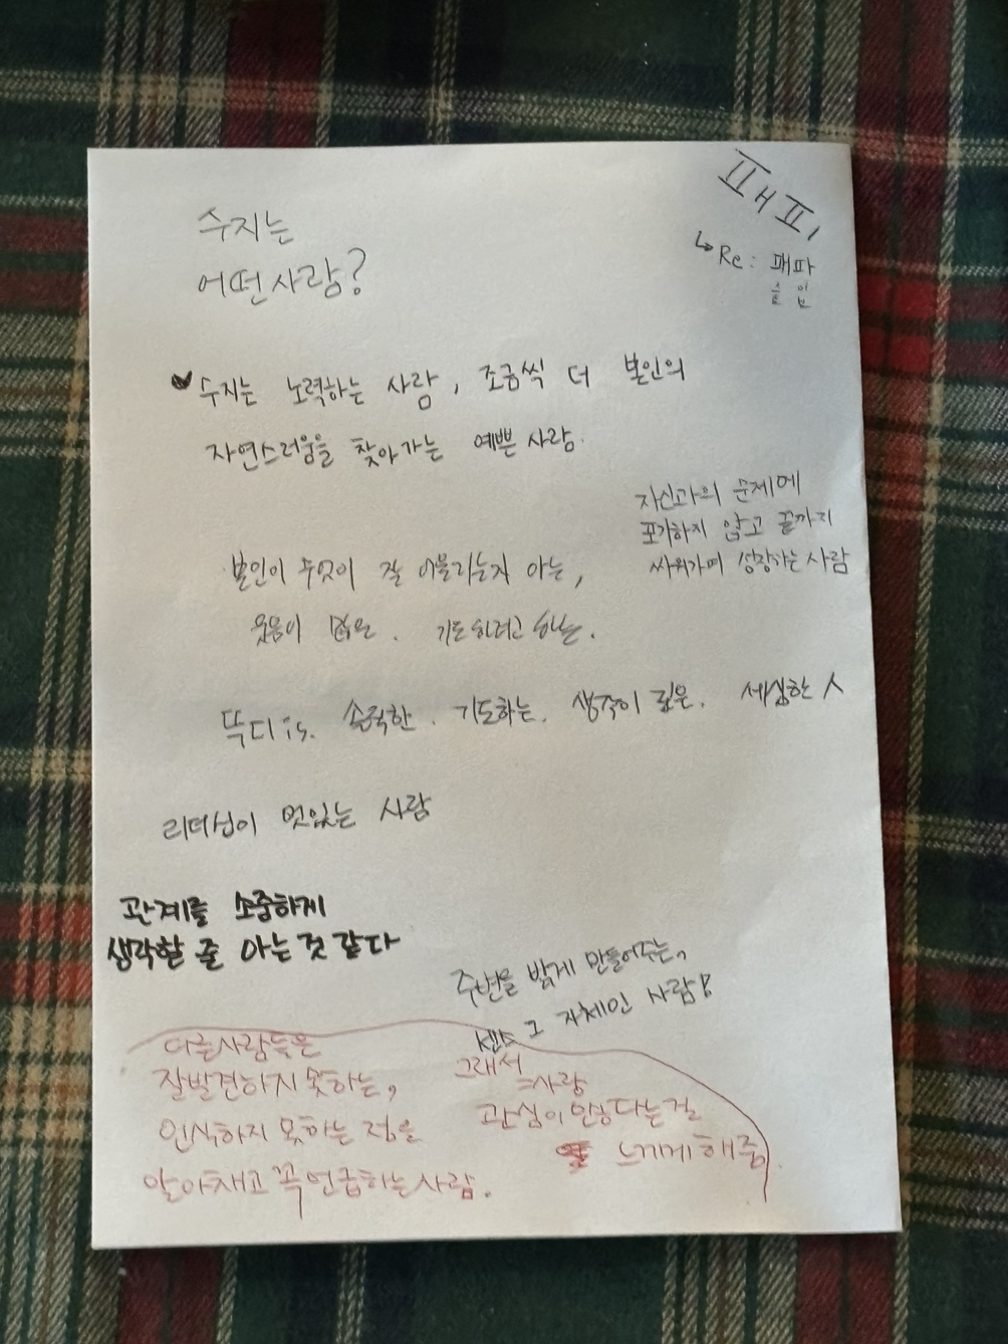 수지는
어떤사람?
표ㅐ표ㅣ
↳ Re: 패파
수지는 노력하는 사람, 조금씩 더 본인의
자연스러움을 찾아가는 예쁜 사람.
자신과의 문제에
포기하지 않고 끝까지
싸워가며 성장하는 사람
본인이 무엇이 잘 어울리는지 아는,
웃음이 많은. 기도하려고 하는.
뚝디is. 솔직한. 기도하는. 생각이 깊은. 세심한 人
리더십이 멋있는 사람
관계를 소중하게
생각할 줄 아는 것 같다
주변을 밝게 만들어주는,
센스 그 자체인 사람!
다른사람들은
잘발견하지 못하는,
인식하지 못하는 점을
알아채고 꼭 언급하는사람.
그래서
=사랑
관심이 있다는걸
느끼게해줌.